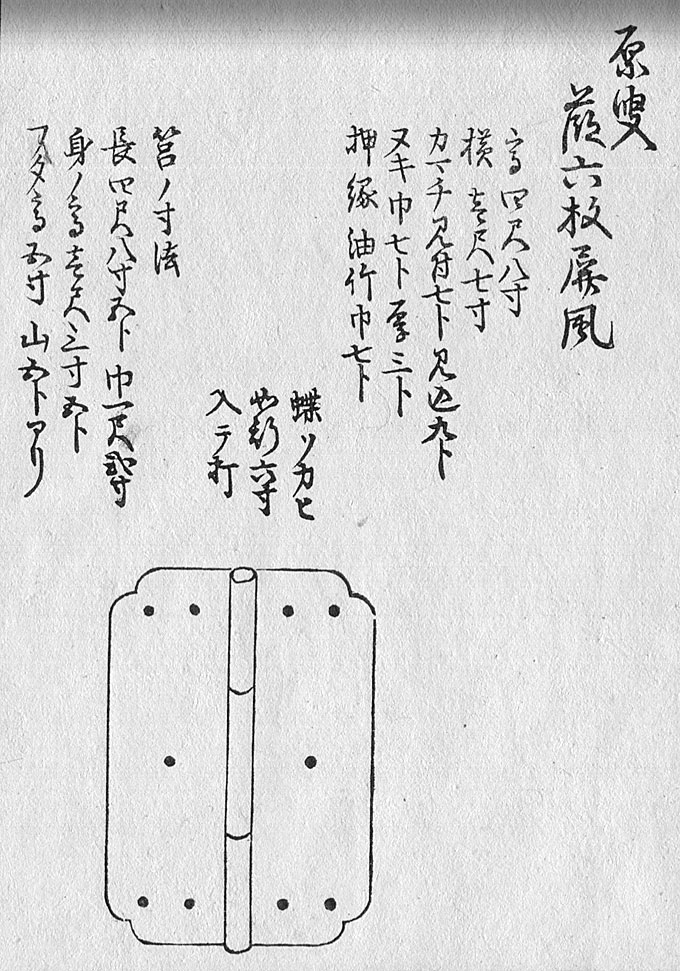 原叟
蔽六枚屏風
高四尺八寸
横壱尺七寸
カマチ見付七卜見込九卜
ヌキ巾七卜厚三卜
押縁油竹巾七卜
蝶ツカヒ
六寸
入テ打
筥ノ寸法
長四尺八寸五卜巾一尺弐寸
身ノ高壱尺三寸五卜
フタ高五寸山五卜アリ